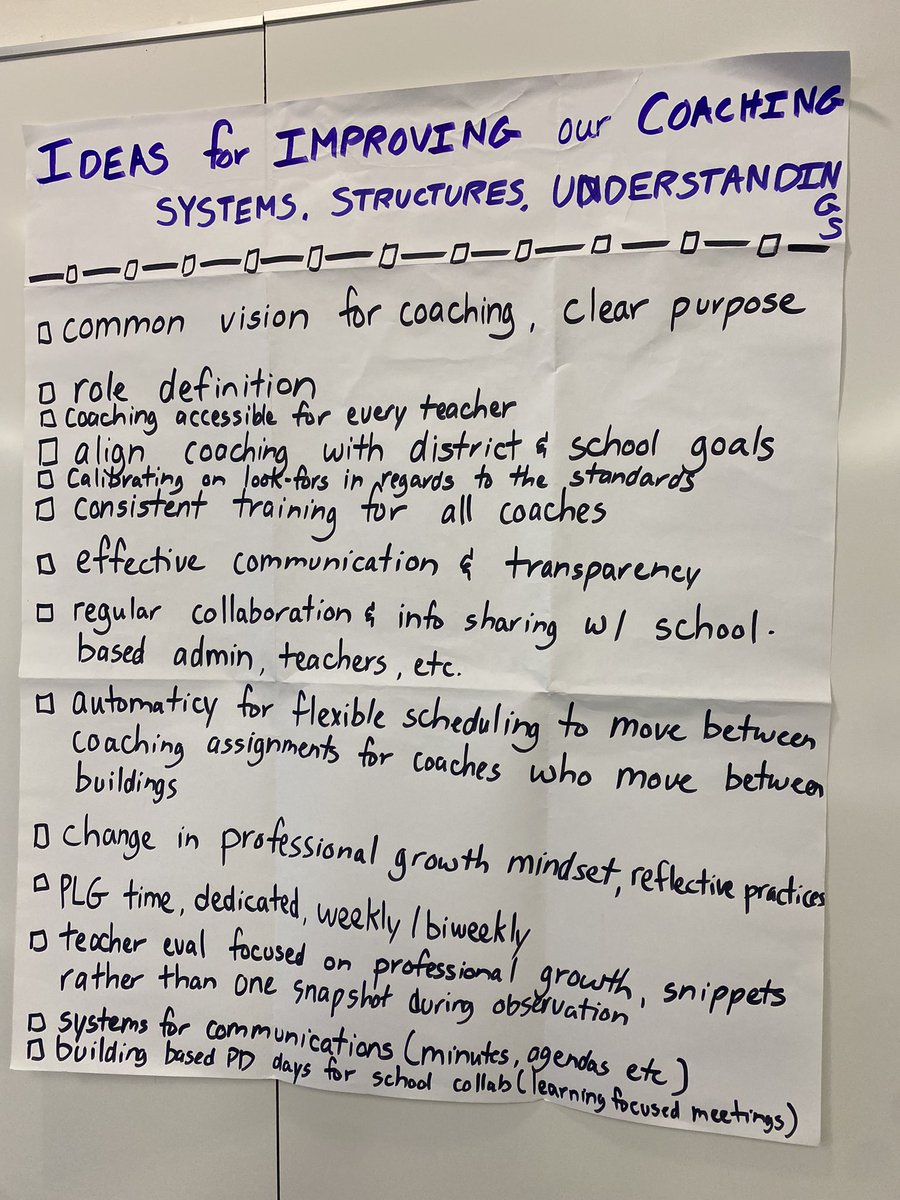 IDEAS for IMPROVING our COACHING
SYSTEMS, STRUCTURES, UNDERSTANDINGS
common vision for coaching, clear purpose
role definition
coaching accessible for every teacher
align coaching with district & school goals
Calibrating on look-fors in regards to the standards
consistent training for all coaches
effective communication & transparency
regular collaboration & info sharing w/ school-
based admin, teachers, etc.
automaticy for flexible scheduling to move between
coaching assignments for coaches who move between
buildings
change in professional growth mindset, reflective practices
PLG time, dedicated, weekly/biweekly
teacher eval focused on professional growth, snippets
rather than one snapshot during observation
systems for communications (minutes, agendas etc)
building based PD days for school collab (learning focused meetings)